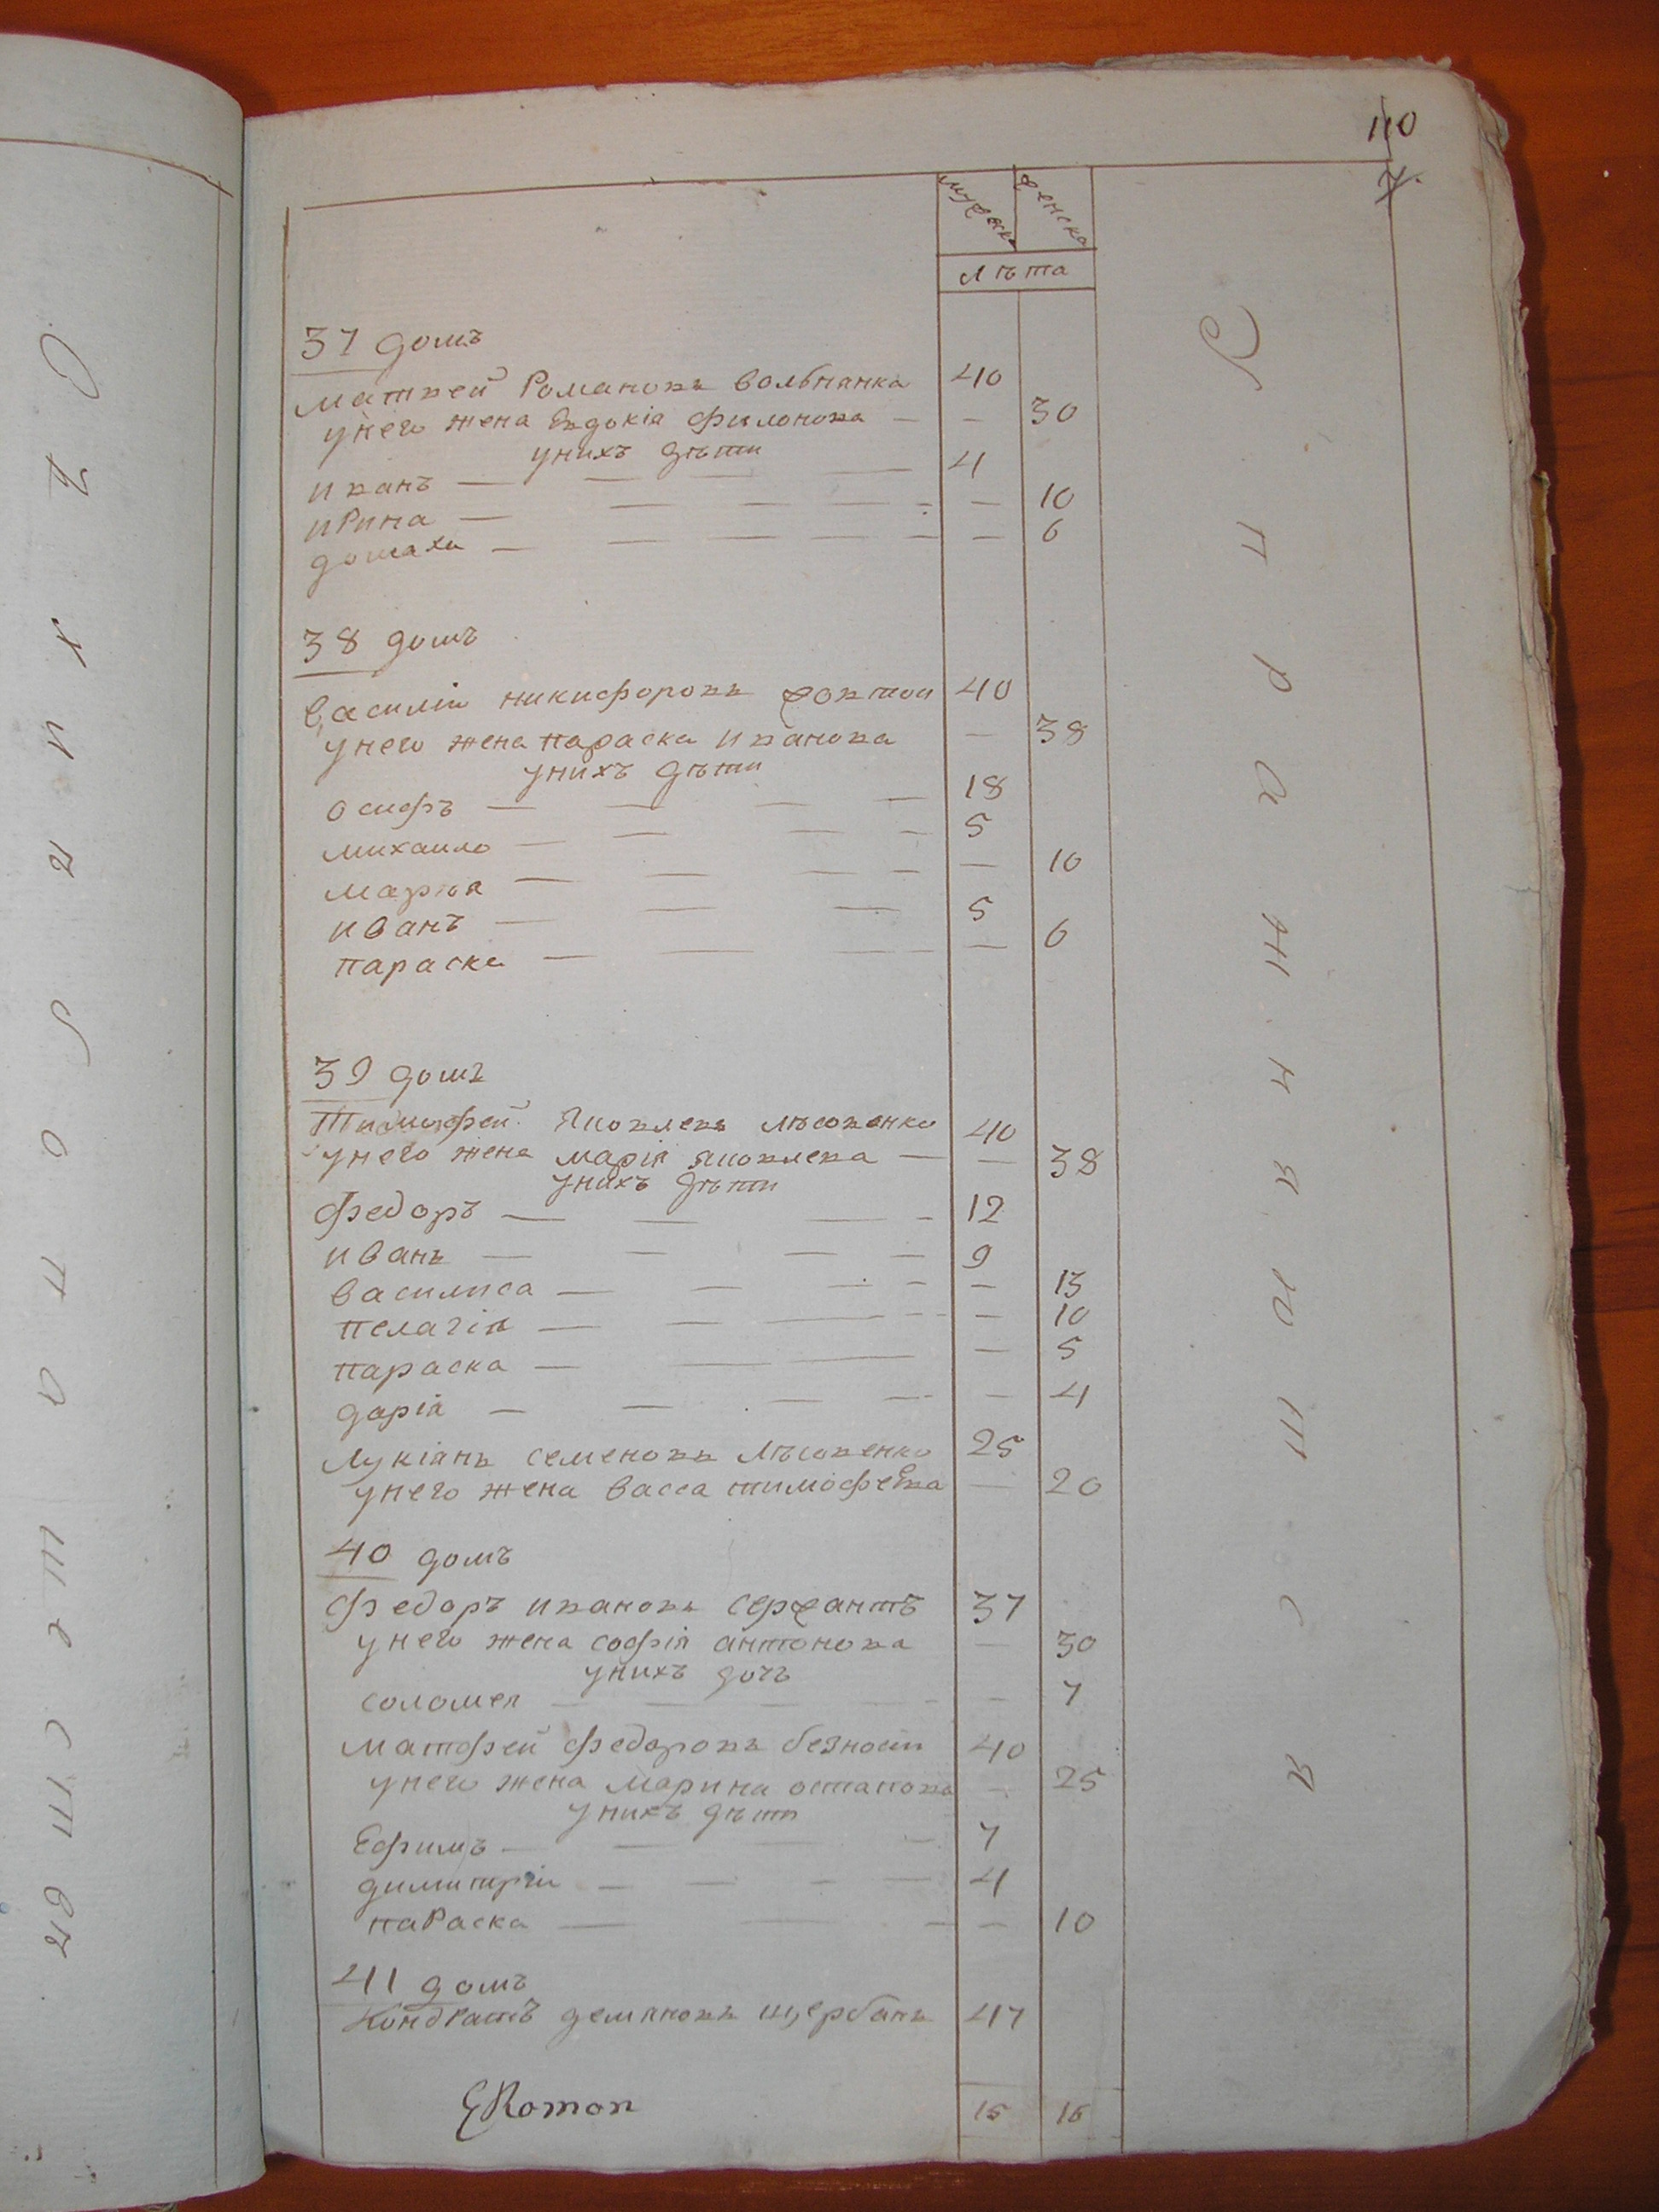 110
7.
мужеска женска
лѣта
37 домъ
матвей Романовъ вольнянка 40
унего жена Евдокіа филонова — — 30
унихъ дѣти
иванъ — — — — 4
ирина — — — — — — 10
домаха — — — — — — 6
38 домъ
василій никифоровъ жовтой 40
унего жена параска иванова — 38
унихъ дѣти
осифъ — — — — 18
михаило — — — — 5
марія — — — — — 10
иванъ — — — 5
параска — — — — 6
39 домъ
Тимофей Яковлевъ лѣсовенко 40
унего жена марія яковлева — — 38
унихъ дѣти
федоръ — — — — 12
иванъ — — — — 9
василиса — — — — — 13
пелагія — — — — — 10
параска — — — — 5
дарія — — — — — 4
Лукіанъ семеновъ Лѣсовенко 25
унего жена васса тимофеева — 20
40 домъ
федоръ ивановъ сержантъ 37
унего жена софія антонова — 30
унихъ дочь
соломея — — — — — — 7
матфей федоровъ безносий 40
унего жена марина остапова — 25
унихъ дѣти
Ефимъ — — — — 7
димитрій — — — — 4
параска — — — — 10
41 домъ
Кондратъ демяновъ щербань 47
15 16